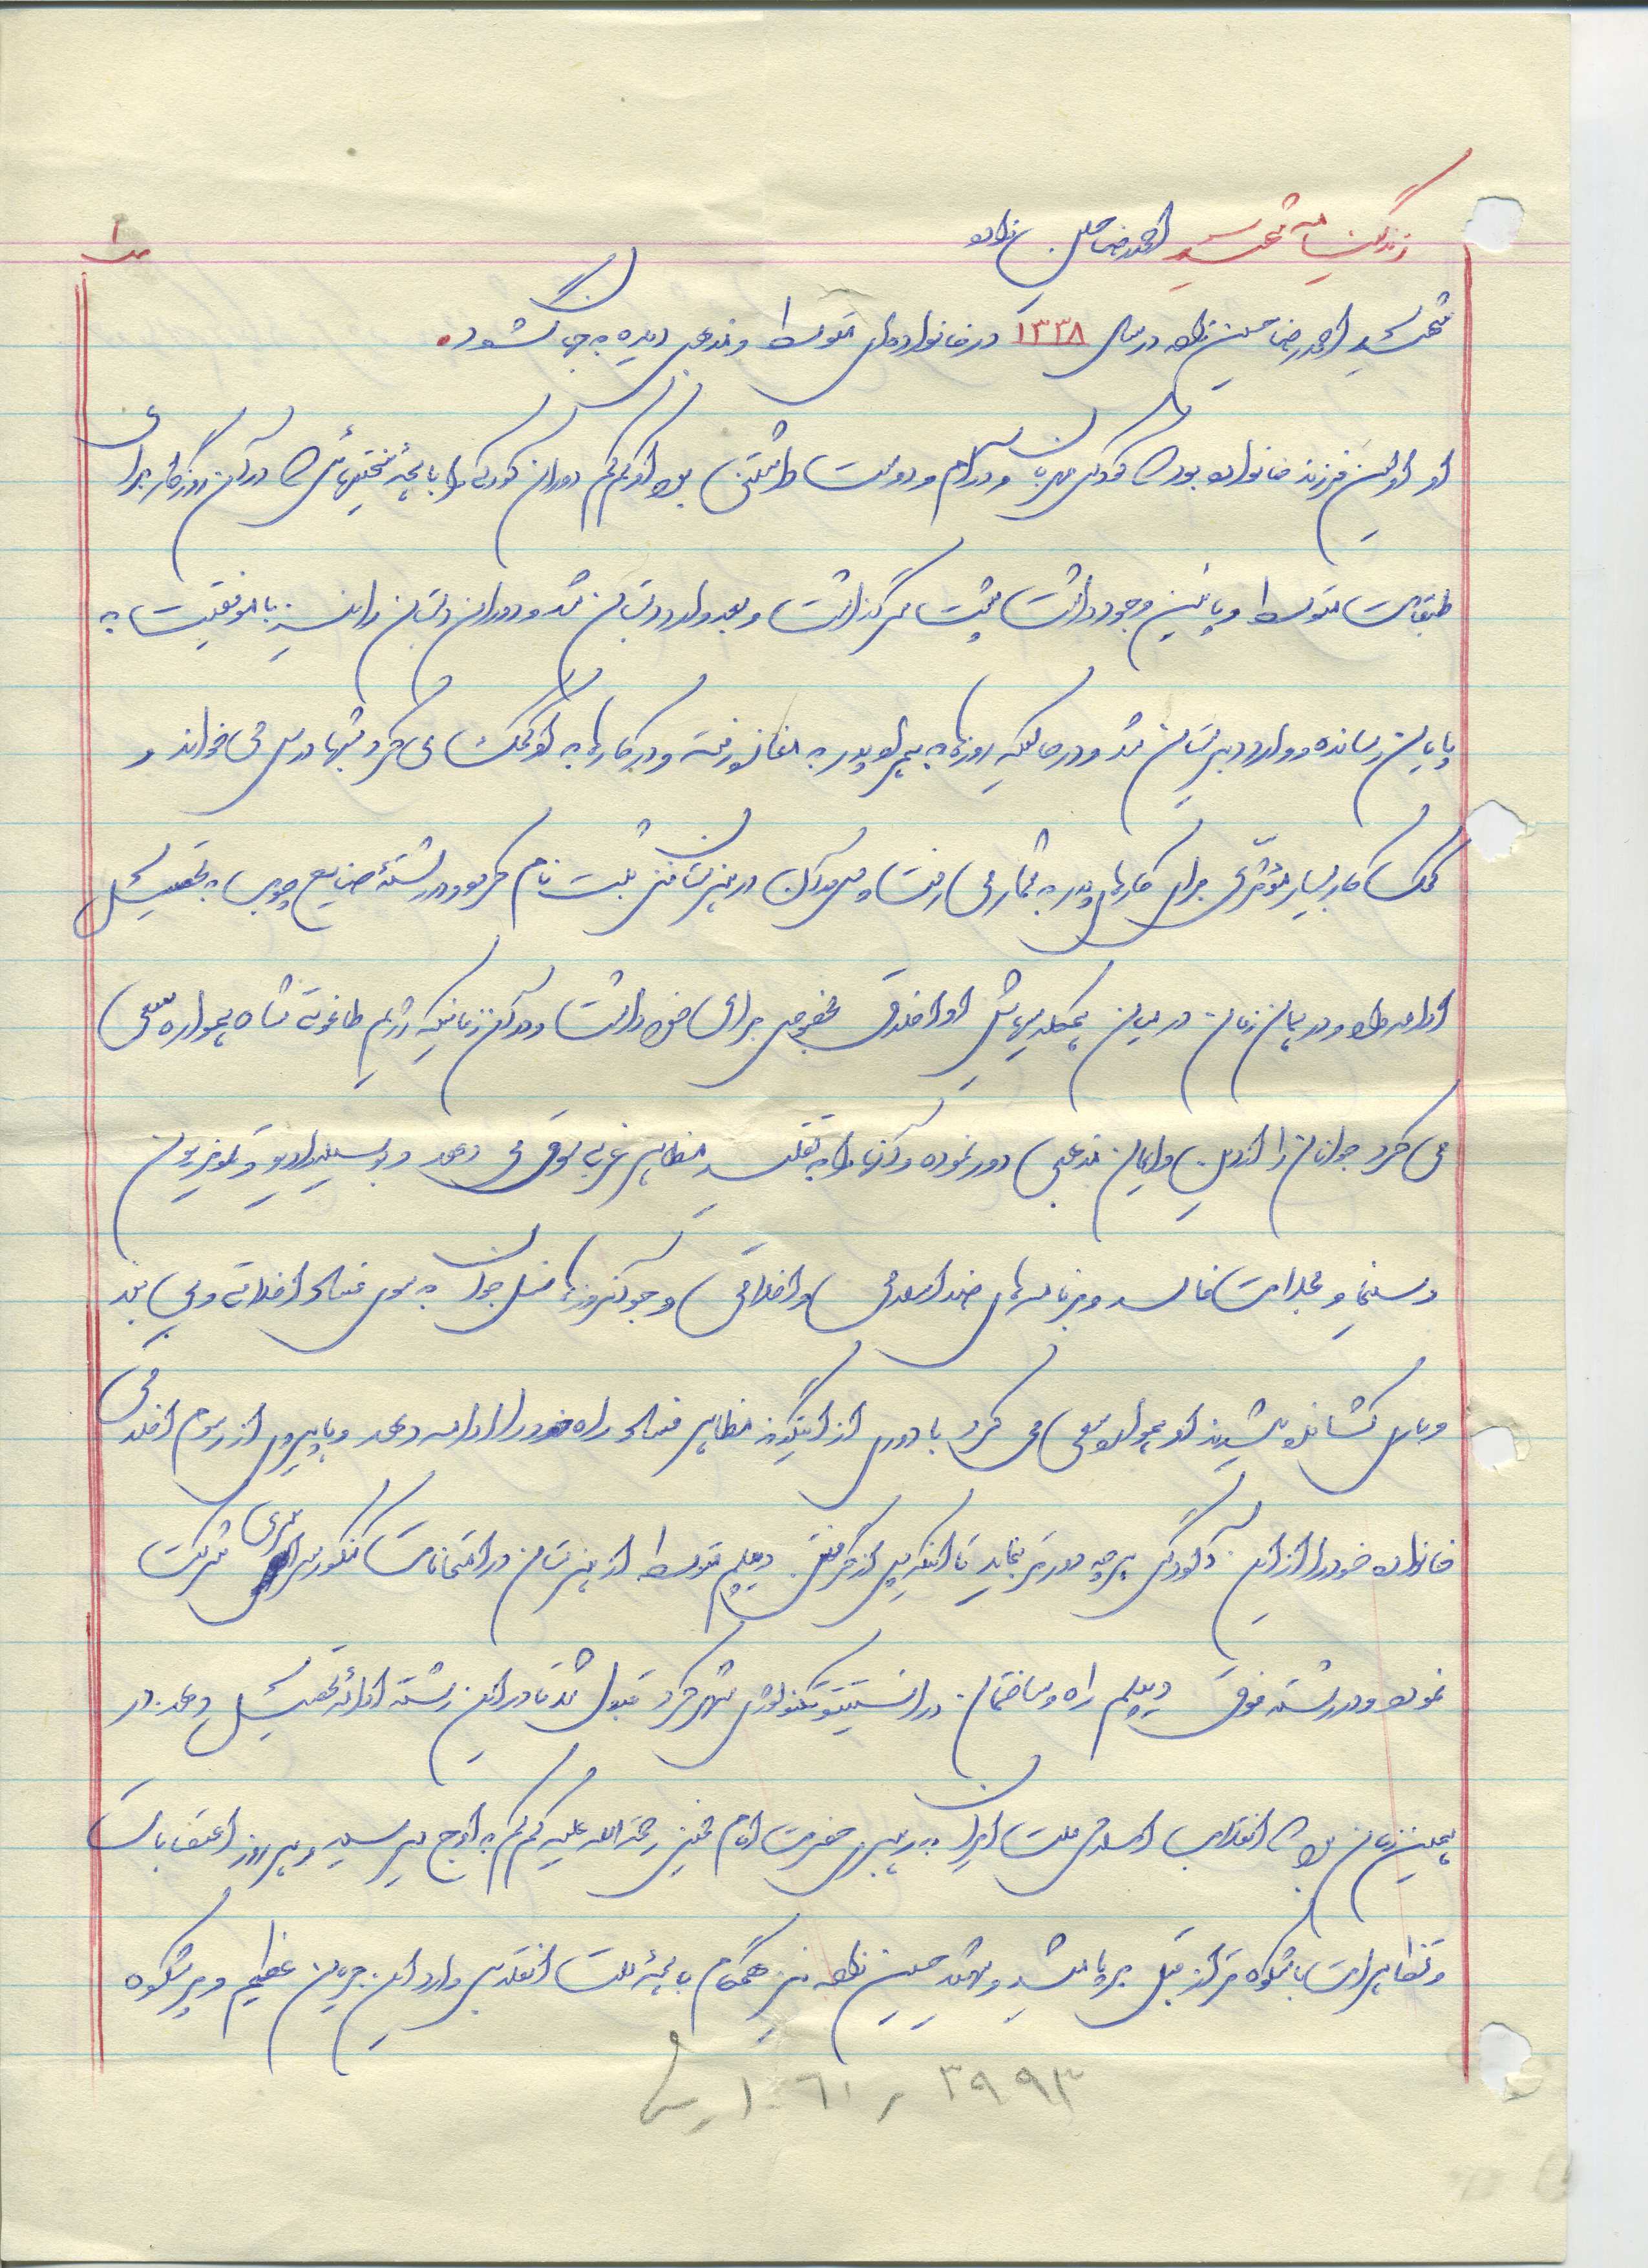 زندگینامه شهید احمدرضا حسین زاده
ص۱
شهید احمدرضا حسین زاده در سال ۱۳۳۸ در خانواده‌ای متوسط و مذهبی دیده به جهان گشود.
او اولین فرزند خانواده بود کودکی مهربان و آرام و دوست داشتنی بود او کم کم دوران کودکی را با همهٔ سختیهائی که در آن روزگار برای
طبقات متوسط و پائین وجود داشت پشت سر گذاشت و بعد وارد دبستان شد و دوران دبستان را نیز با موفقیت به
پایان رسانده و وارد دبیرستان شد و در حالیکه روزها به همراه پدر به مغازه رفته و در کارها به او کمک می کرد شبها درس می خواند و
کمک کار بسیار مؤثری برای کارهای پدر به شمار می رفت و پس از آن در هنرستان فنی ثبت نام کرد و در رشتهٔ صنایع چوب به تحصیل
ادامه داد و در همان زمان در میان همکلاسیهایش او اخلاق مخصوصی برای خود داشت و در آن زمانیکه رژیم طاغوتی شاه همواره سعی
می کرد جوانان را از دین و ایمان مذهبی دور نموده و آنها را به تقلید مظاهر غربی سوق می دهد و بوسیله رادیو و تلویزیون
و سینما و مجلات فاسد و برنامه‌های ضد اسلامی و اخلاقی و جو آنروزها نسل جوان به سوی فساد اخلاقی و بی بند
و باری کشانده میشدند او همواره سعی می کرد با دوری از اینگونه مظاهر فساد راه خود را ادامه دهد و با پیروی از رسوم اخلاقی
خانواده خود را از این آلودگی هر چه دورتر نماید تا اینکه پس از گرفتن دیپلم متوسطه از هنرستان در امتحانات کنکور سراسری شرکت
نمود و در رشته فوق دیپلم راه و ساختمان در انستیتو تکنولوژی شهرکرد قبول شد تا در این رشته ادامه تحصیل دهد. در
همین زمان بود که انقلاب اسلامی ملت ایران به رهبری حضرت امام خمینی رحمة الله علیه کم کم به اوج میرسید و هر روز اعتصابات
و تظاهرات باشکوه تر از قبل برپا میشد و شهید حسین زاده نیز همگام با همهٔ ملت انقلابی وارد این جریان عظیم و پرشکوه